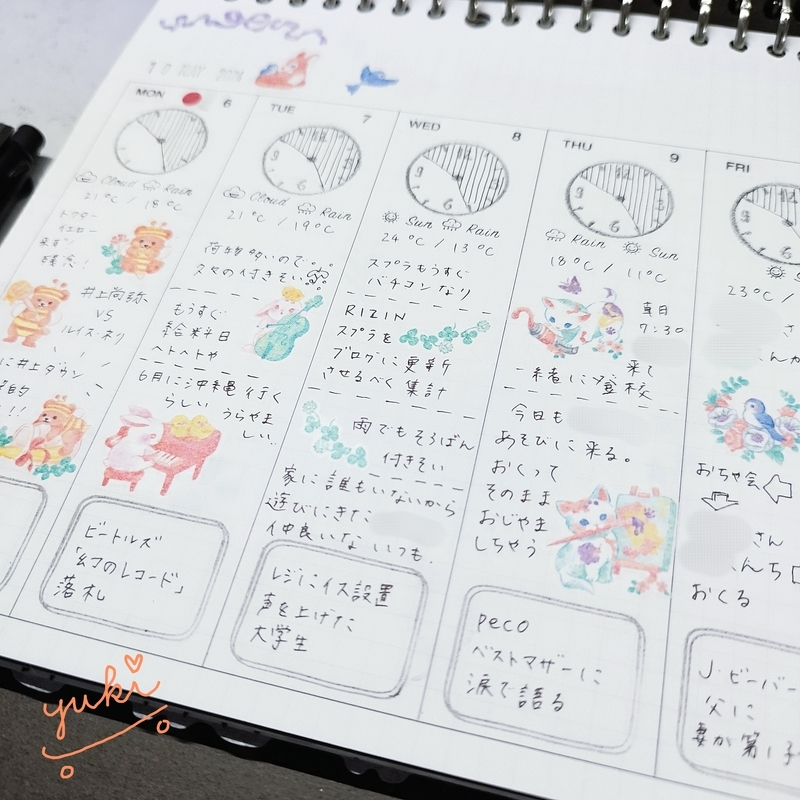 MON 6
Cloud Rain
21℃ / 18℃
ドクター
イエロー
残念!
井上尚弥
VS
ルイス・ネリ
に井上ダウン
!!
TUE 7
Cloud Rain
21℃ / 19℃
荷物多いので
もうすぐ
給料日
ヘトヘトや
6月に沖縄行く
らしい うらやま
しい..
ビートルズ
「幻のレコード」
落札
WED 8
Sun Rain
24℃ / 13℃
スプラもうすぐ
バチコンなり
RIZIN
スプラを
ブログに更新
させるべく 集計
雨でもそろばん
付きそい
家に誰もいないから
遊びにきた
仲良いな いつも.
レジにイス設置
声を上げた
大学生
THU 9
Rain Sun
18℃ / 11℃
7:30
来て
一緒に登校
今日も
あそびに来る。
おくって
そのまま
おじゃま
しちゃう
peco
ベストマザーに
涙で語る
FRI
23℃ /
さ
んか
おちゃ会
さん
んち
おくる
J・ビーバー
父に
妻が第1子
yuki